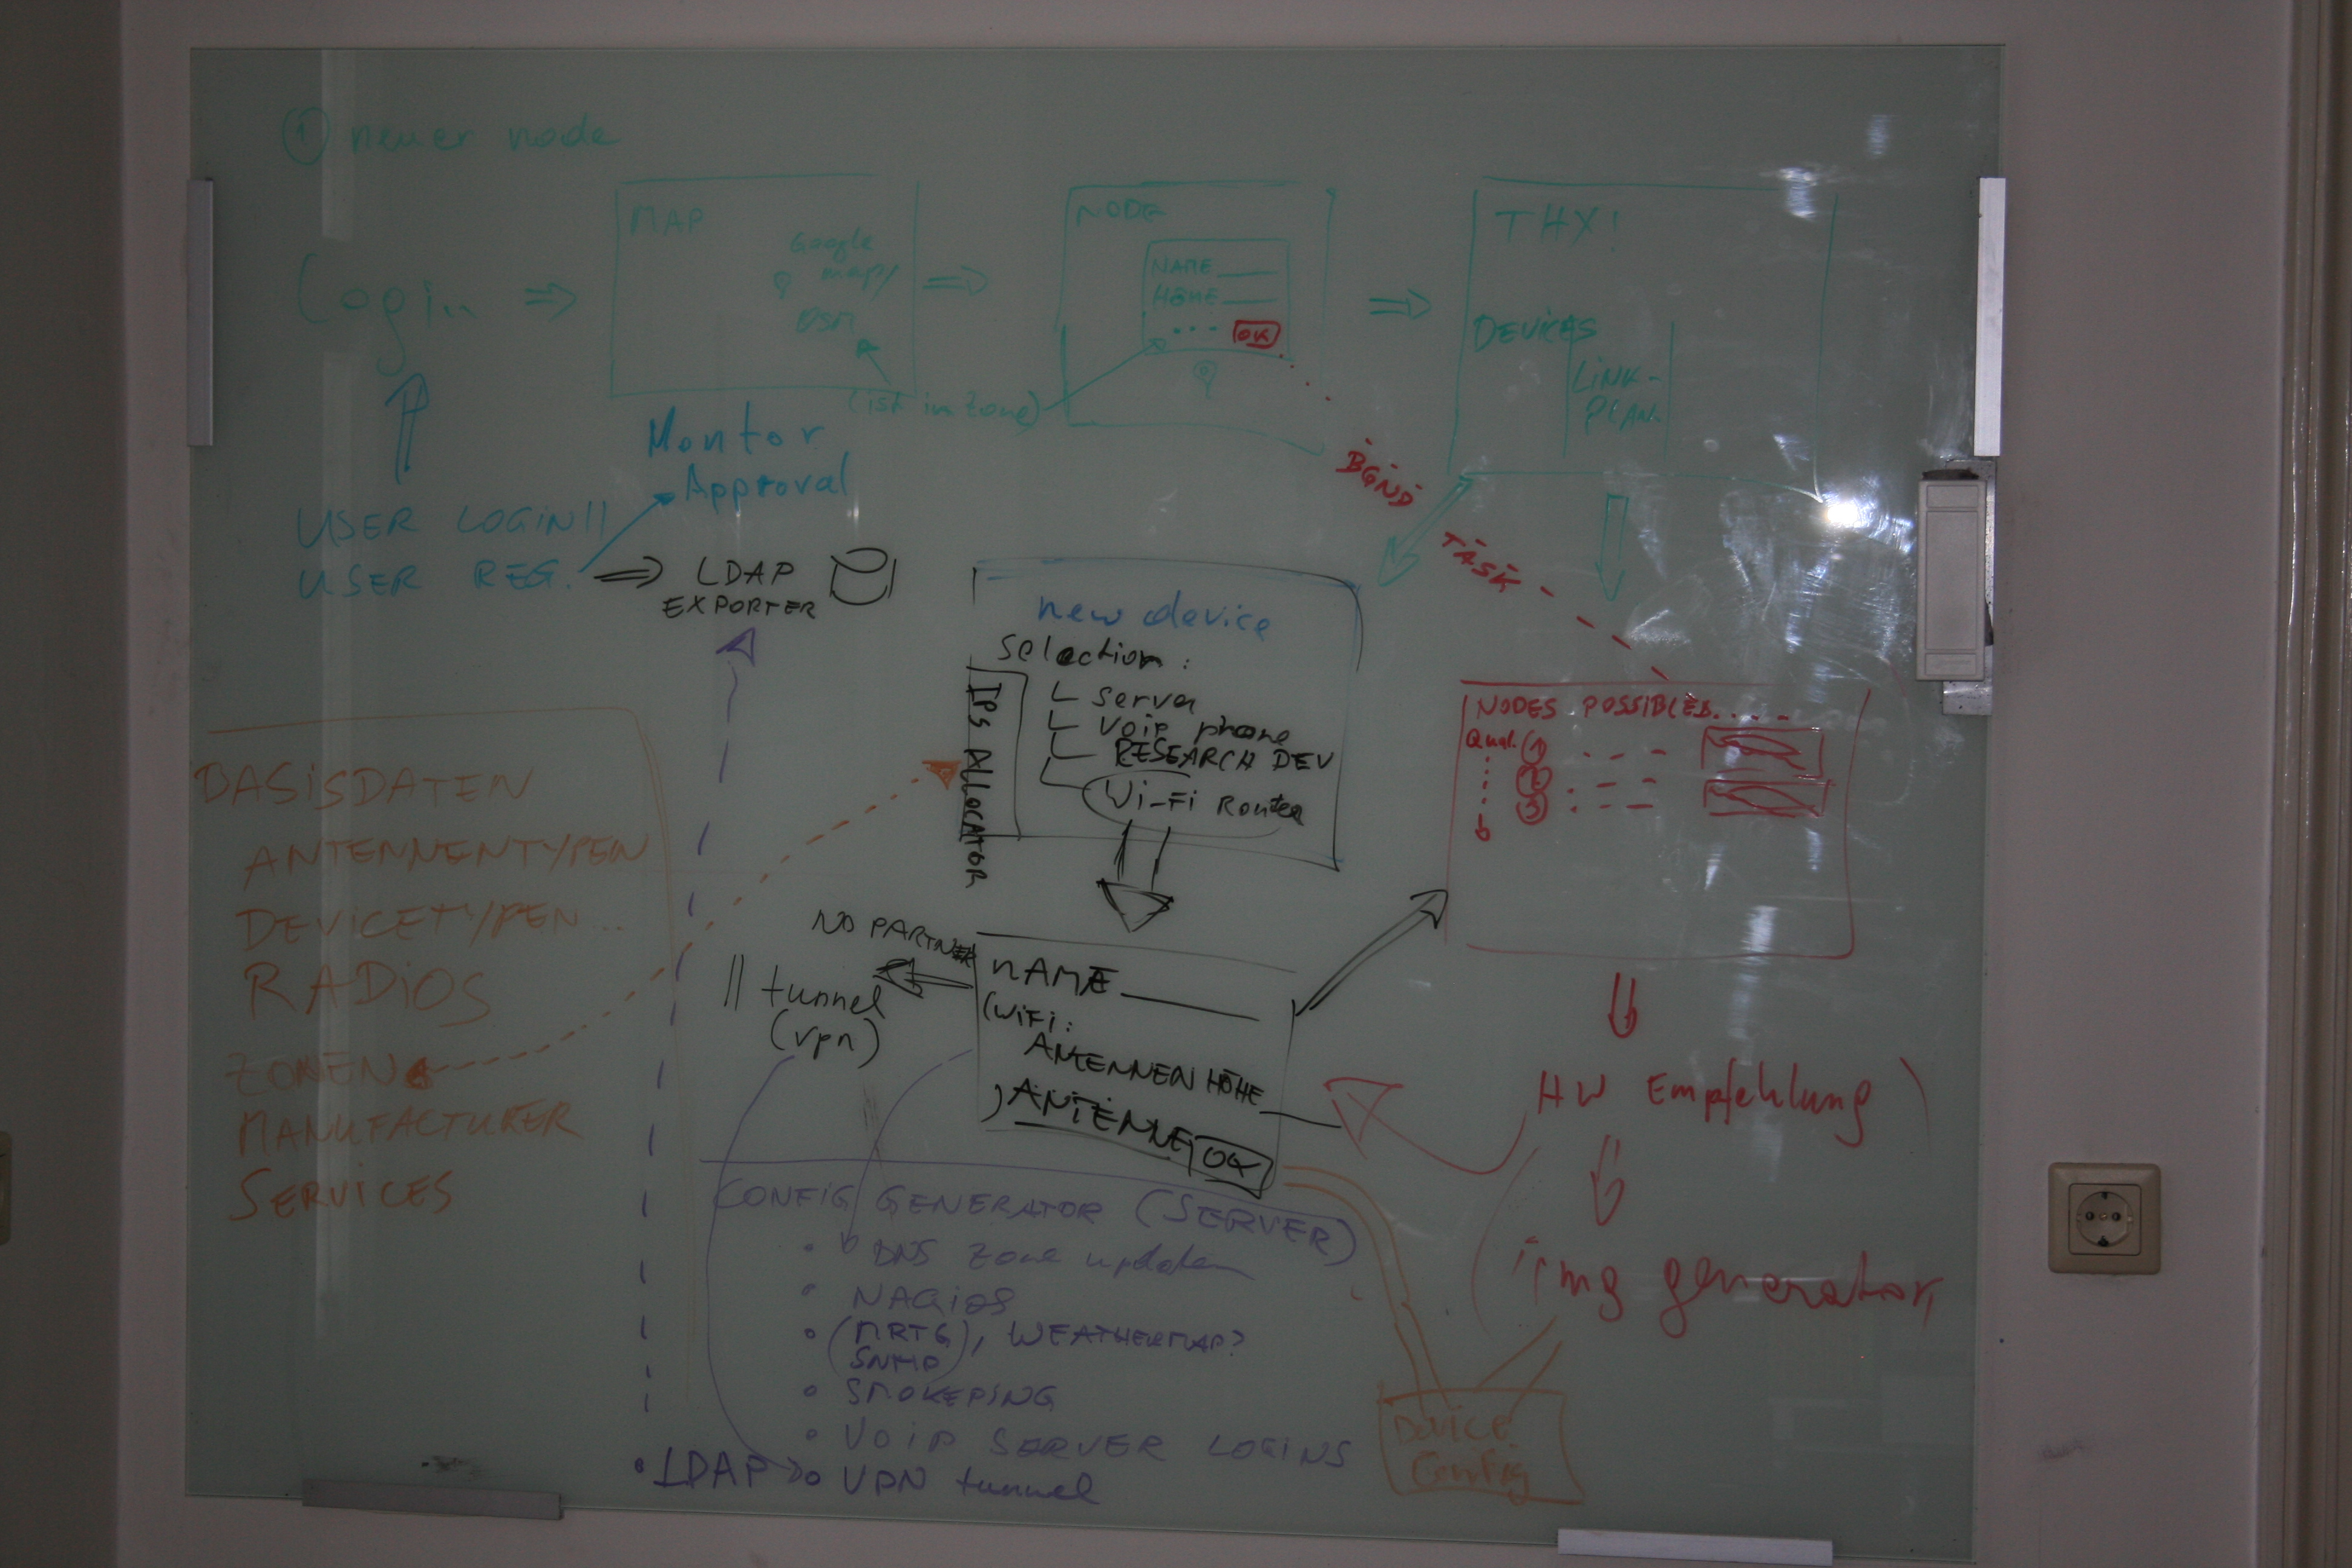 ① neuer node
Login ⇒
MAP
Google
maps
OSM
(ist in zone)
NODE
NAME ____
HÖHE ____
... OK
THX!
DEVICES
LINK-
PLAN.
Approval
USER LOGIN ||
USER REG.
LDAP
EXPORTER
BGND
TASK
new device
selection:
server
VoIP phone
RESEARCH DEV
Wi-Fi Router
IPS ALLOCATOR
NODES POSSIBLE
Qual. ①
②
③
BASISDATEN
ANTENNENTYPEN
DEVICETYPEN...
RADIOS
ZONEN
MANUFACTURER
SERVICES
NO PARTNER
|| tunnel
(vpn)
NAME ____
(WiFi:
ANTENNEN HÖHE ____
) ANTENNE
OK
HW Empfehlung
img generator
CONFIG GENERATOR (SERVER)
• DNS zone update
• NAGIOS
• (MRTG), WEATHERMAP?
SNMP
• SMOKEPING
• VOIP SERVER LOGINS
• LDAP • VPN tunnel
Device
Config